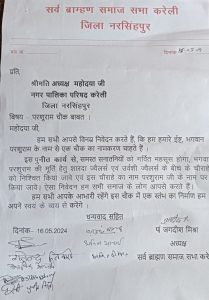 सर्व ब्राह्मण समाज सभा करेली
जिला नरसिंहपुर
प्रति,
श्रीमति अध्यक्ष महोदया जी
नगर पालिका परिषद करेली
जिला नरसिंहपुर
विषय - परशुराम चौक बावत ।
महोदया जी,
हम सभी आपसे विनम्र निवेदन करते हैं, कि हम हमारे ईष्ट, भगवान
परशुराम के नाम से एक चौक का नामकरण चाहते हैं ।
इस पुनीत कार्य से, समस्त सनातनियों को गर्वित महसूस होगा, भगवान
परशुराम की मूर्ति हेतु शारदा ज्वैलर्स एवं उर्वशी ज्वैलर्स के बीच के चौराहे
को निश्चित किया जावे एवं इस चौराहे का नाम परशुराम जी के नाम पर
किया जावे। ऐसा निवेदन हम सभी समाज के लोग आपसे करते हैं।
हम सभी आपके आभारी रहेंगे इस चौक में एक स्तंभ का निर्माण हम
अपने स्वयं के व्यय से करेंगे ।
धन्यवाद सहित
दिनांक - 16.05.2024
पं जगदीश मिश्रा
अध्यक्ष
सर्व ब्राह्मण समाज सभा करेली